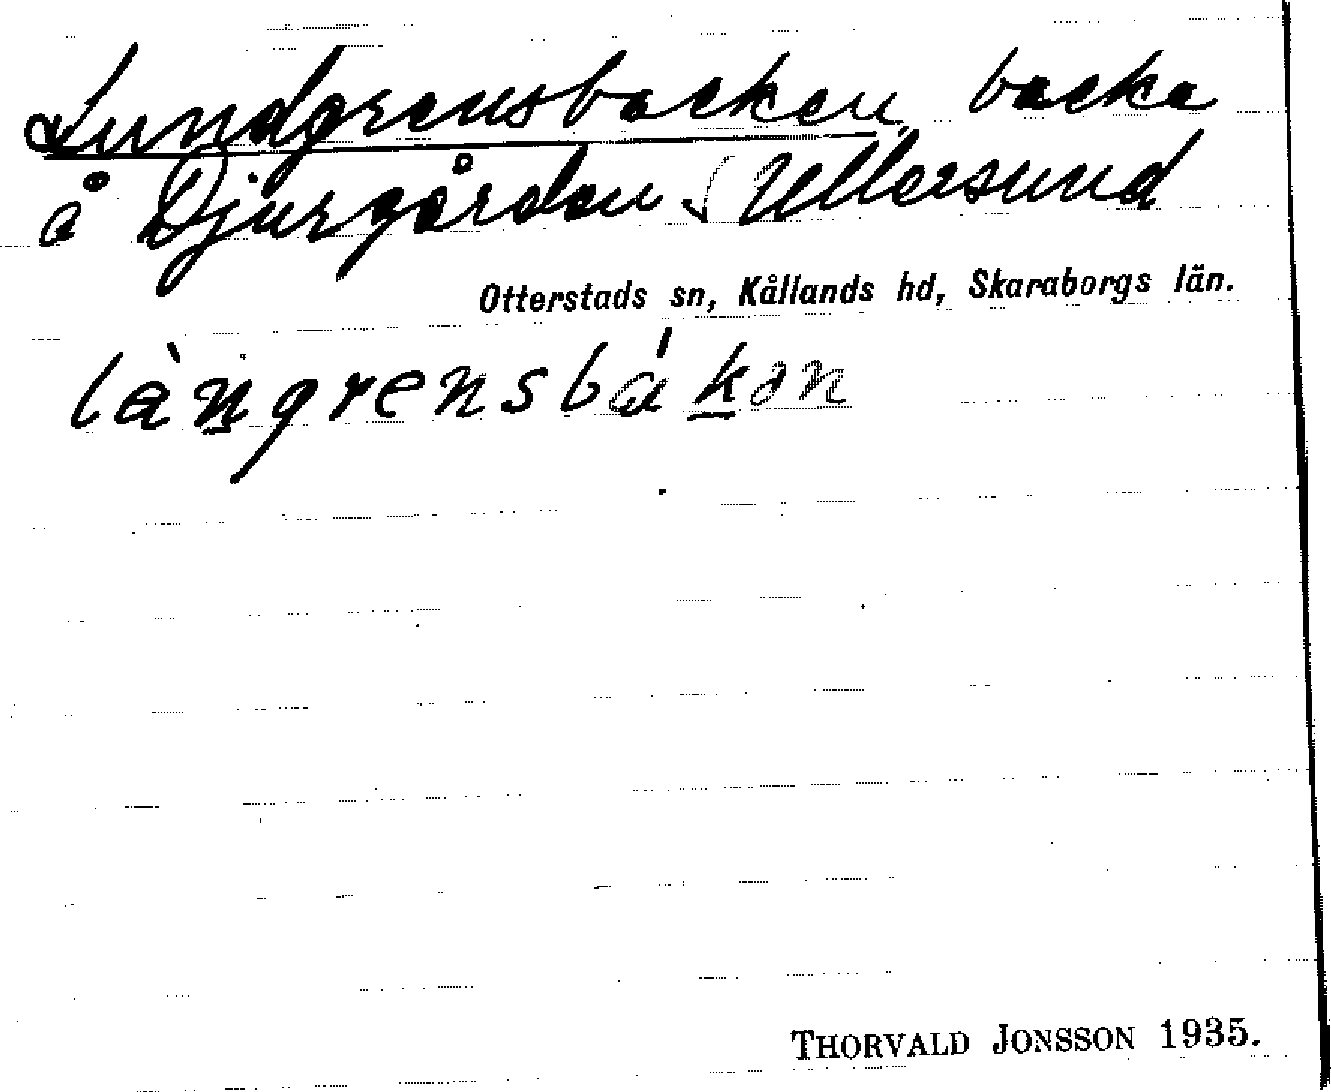 Lundgrensbacken backe
å Djurgården √ Ullersund
Otterstads sn, Kållands hd, Skaraborgs län.
làn̠grensbák̠ən
THORVALD JONSSON 1935.